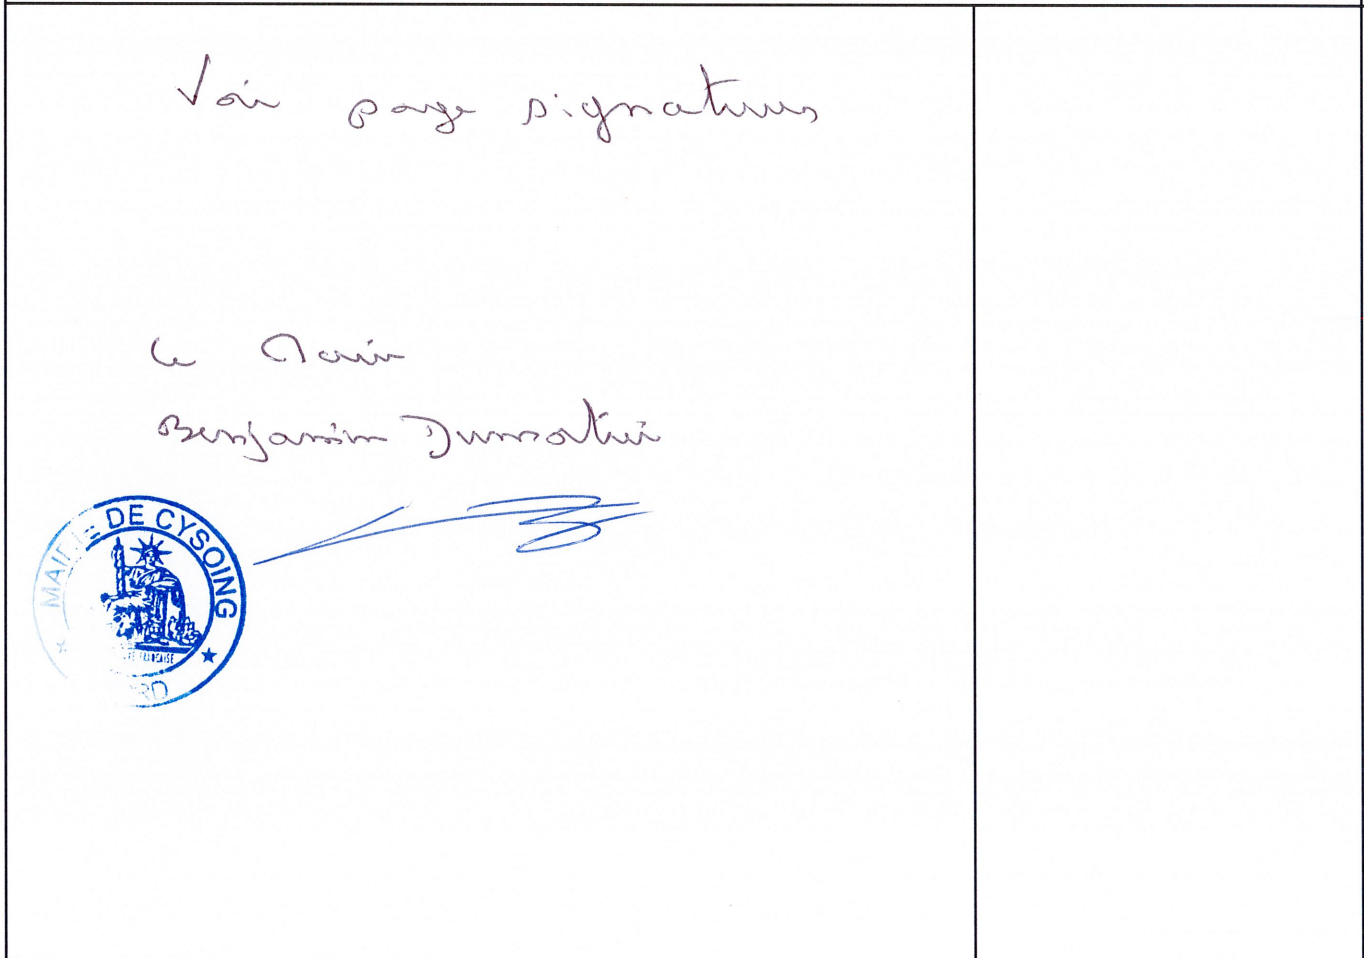 Voir page signatures
Le Maire
Benjamin Dumortier
MAIRIE DE CYSOING
FRANÇAISE